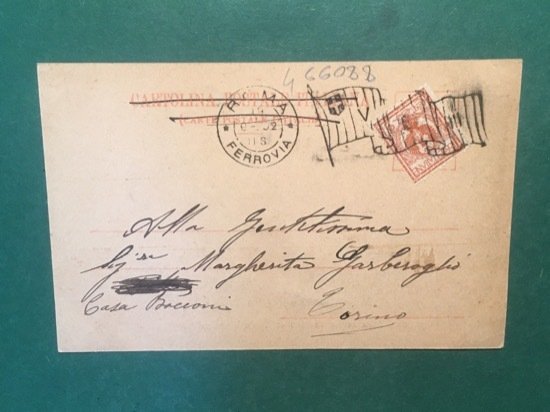 466088
CARTOLINA POSTALE
ROMA
FERROVIA
V E
Alla Gentilissima
Sig.ra Margherita Garberoglio
Casa Boccioni
Torino